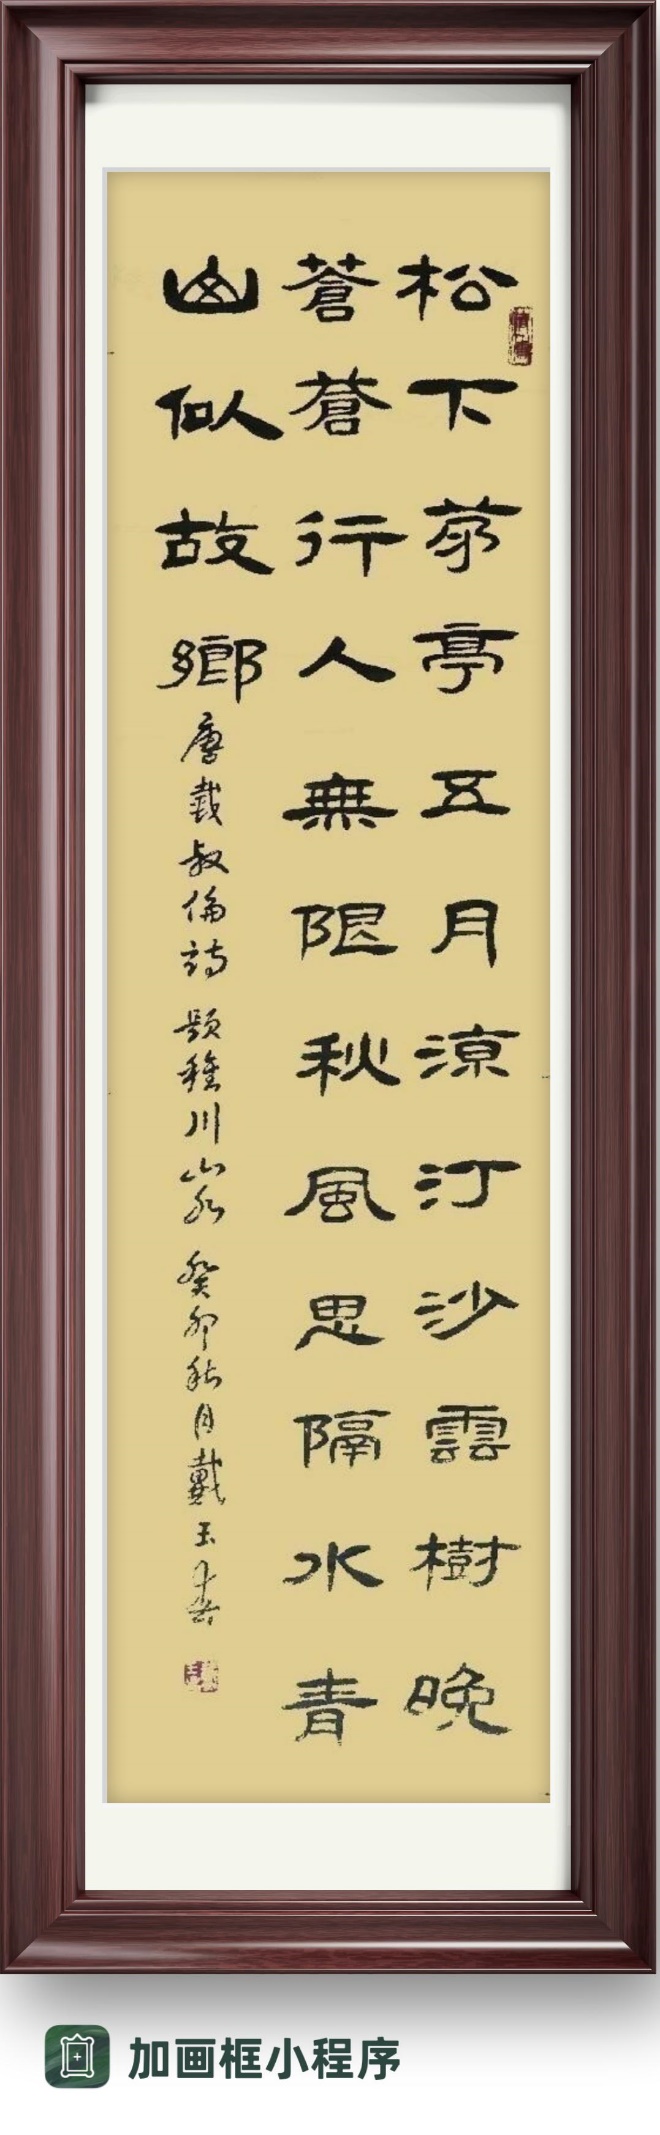 松下茅亭五月涼汀沙雲樹晚
蒼蒼行人無限秋風思隔水青
山似故鄉
唐戴叔倫詩 題稚川山水 癸卯秋月戴玉春
加画框小程序